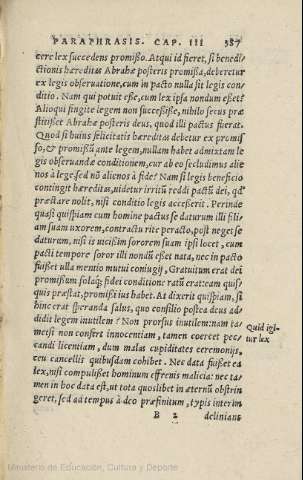 PARAPHRASIS. CAP. III 587
cere lex succedens promisso. Atqui id fieret, si benedi-
ctionis hæreditas Abrahæ posteris promissa, deberetur
ex legis obseruatione, cum in pacto nulla sit legis con-
ditio. Nam qui potuit esse, cum lex ipsa nondum esset?
Alioqui sine lege non successisset, nihilo secus præ
stitisset Abrahæ posteris deus, quod illi pactus fuerat.
Quod si huius felicitatis hæreditas debetur ex promis
so, & promissum ante legem, nullam habet admixtam le
gis obseruandæ conditionem, cur ab eo secludimus alie
nos à lege, sed nō alienos à fide? Nam si legis beneficio
contingit hæreditas, uidetur irritū reddi pactū dei, qd'
præstare nolit, nisi conditio legis accesserit. Perinde
quasi quispiam cum homine pactus se daturum illi filiā
suam uxorem, contractu rite peracto, post neget se
daturum, nisi is uicissim sororem suam ipsi locet, cum
pacti tempore soror illi nondū esset nata, nec in pacto
fuisset ulla mentio mutui coniugij. Gratuitum erat dei
promissum, solaq; fidei conditione ratū erat: eam quis-
quis præstat, promissi ius habet. At dixerit quispiam, si
hinc erat speranda salus, quo consilio postea deus ad
didit legem inutilem? Non prorsus inutilem: nam ta-
metsi non confert innocentiam, tamen coercet pec-
candi licentiam, dum malas cupiditates ceremonijs,
ceu cancellis quibusdam cohibet. Nec data fuisset ea
lex, nisi compulisset hominum effrenis malicia: nec ta-
men in hoc data est, ut tota quoslibet in æternū obstrin
geret, sed ad tempus à deo præfinitum, typis interim
Quid igi-
tur lex
B 2 delinians
Ministerio de Educación, Cultura y Deporte